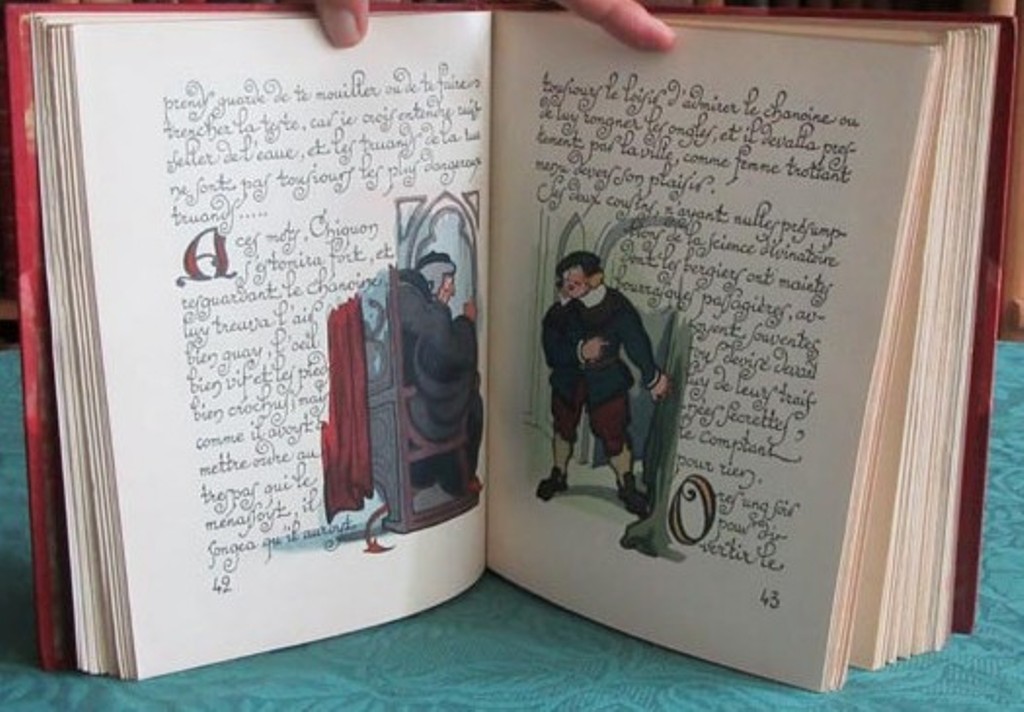 prends guarde de te mouiller ou de te faire
trencher la teste, car je crois entendre ruis-
seller de l'eaue, et les truands de la rue
ne sont pas tousiours les plus dangereux
truands.....
A ces mots, Chiquon
s'estonira fort, et
resguardant le chanoine
luy treuva l'air
bien guay, l'oeil
bien vif et les pieds
bien crochus; mais
comme il avoyt à
mettre ordre au
trespas qui le
menassoyt, il
songea qu'il auroyt
42
tousiours le loisir d'admirer le chanoine ou
de luy rongner les ongles, et il devalla pres-
tement par la ville, comme femme trottant
menu devers son plaisir.
Ces deux cousins, n'ayant nulles présump-
tions de la science divinatoire
dont les bergiers ont maintes
bourrasques passagières, av-
oyent souventes
foys devisé devant
luy de leurs traif-
nées secrettes,
le comptant
pour rien.
Ores ung soir
pour di-
vertir le
43